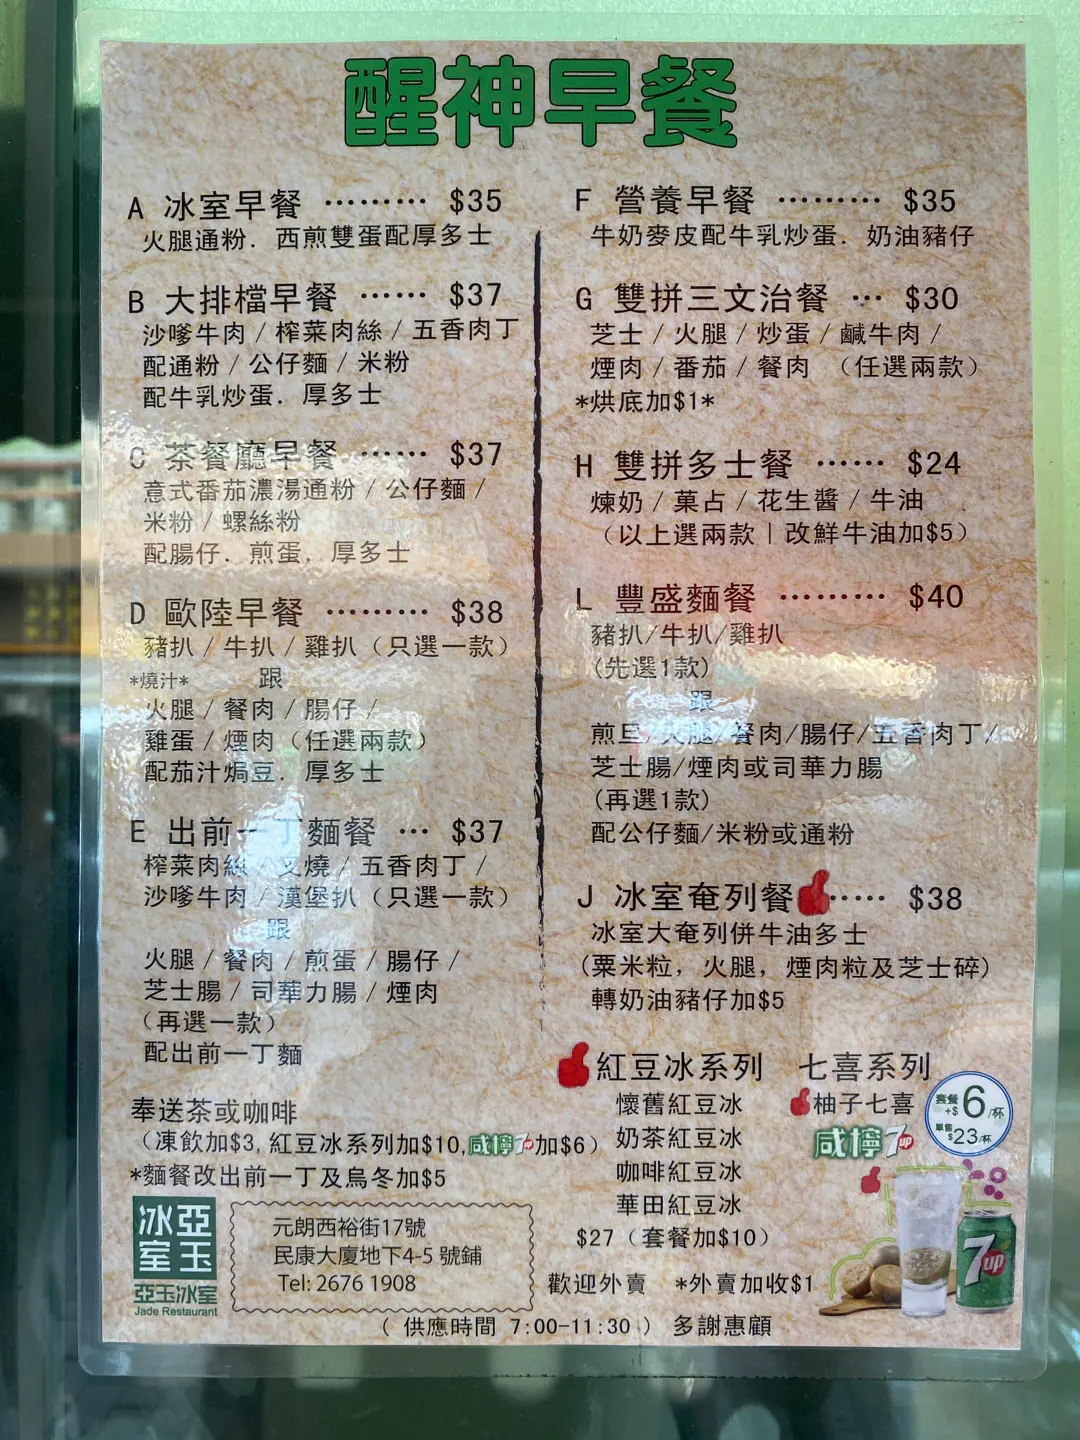 醒神早餐
A 冰室早餐 ········· $35
火腿通粉．西煎雙蛋配厚多士
B 大排檔早餐 ······ $37
沙嗲牛肉 / 榨菜肉絲 / 五香肉丁
配通粉 / 公仔麵 / 米粉
配牛乳炒蛋．厚多士
C 茶餐廳早餐 ······ $37
意式番茄濃湯通粉 / 公仔麵 /
米粉 / 螺絲粉
配腸仔．煎蛋．厚多士
D 歐陸早餐 ········· $38
豬扒 / 牛扒 / 雞扒（只選一款）
*燒汁* 跟
火腿 / 餐肉 / 腸仔 /
雞蛋 / 煙肉（任選兩款）
配茄汁焗豆．厚多士
E 出前一丁麵餐 ··· $37
榨菜肉絲 / 叉燒 / 五香肉丁 /
沙嗲牛肉 / 漢堡扒（只選一款）
跟
火腿 / 餐肉 / 煎蛋 / 腸仔 /
芝士腸 / 司華力腸 / 煙肉
（再選一款）
配出前一丁麵
奉送茶或咖啡
（凍飲加$3, 紅豆冰系列加$10, 咸檸7up加$6）
*麵餐改出前一丁及烏冬加$5
F 營養早餐 ········· $35
牛奶麥皮配牛乳炒蛋．奶油豬仔
G 雙拼三文治餐 ··· $30
芝士 / 火腿 / 炒蛋 / 鹹牛肉 /
煙肉 / 番茄 / 餐肉 （任選兩款）
*烘底加$1*
H 雙拼多士餐 ······ $24
煉奶 / 菓占 / 花生醬 / 牛油
（以上選兩款 | 改鮮牛油加$5）
L 豐盛麵餐 ········· $40
豬扒/牛扒/雞扒
(先選1款)
跟
煎旦/火腿/餐肉/腸仔/五香肉丁/
芝士腸/煙肉或司華力腸
(再選1款)
配公仔麵/米粉或通粉
J 冰室奄列餐 ····· $38
冰室大奄列併牛油多士
(粟米粒，火腿，煙肉粒及芝士碎)
轉奶油豬仔加$5
紅豆冰系列
懷舊紅豆冰
奶茶紅豆冰
咖啡紅豆冰
華田紅豆冰
$27（套餐加$10）
七喜系列
柚子七喜
咸檸7up
套餐+$6/杯
單售$23/杯
7up
歡迎外賣 *外賣加收$1
冰室 亞玉
亞玉冰室
Jade Restaurant
元朗西裕街17號
民康大廈地下4-5 號鋪
Tel: 2676 1908
（ 供應時間 7:00-11:30 ） 多謝惠顧